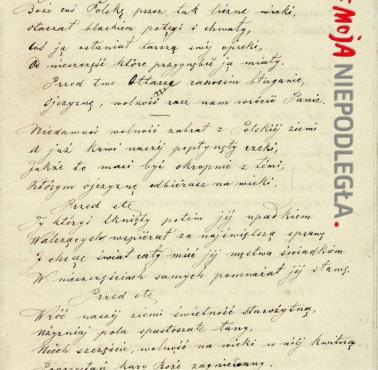 Boże coś Polskę przez tak liczne wieki,
otaczał blaskiem potęgi i chwały,
coś ją osłaniał tarczą swej opieki,
Od nieszczęść które przygnębić ją miały.
Przed twe Ołtarze zanosim błaganie,
Ojczyznę, wolność racz nam wrócić Panie.
Niedawnoś wolność zabrał z Polskiéj ziemi
A już krwi naszéj popłynęły rzeki,
Jakże to musi być okropnie z temi,
Którym ojczyznę odbierasz na wieki.
Przed etc
Ty któryś tknięty potem jéj upadkiem
Walczących wspierał za najświętszą sprawę
I chcąc świat cały mieć jéj męstwa świadkiem
W nieszczęściach samych pomnażał jéj sławę.
Przed etc
Wróć naszéj ziemi świetność starożytną,
Użyźniaj pola spustoszałe łany,
Niech szczęście, wolność na wieki w niéj kwitną
Poprzestań kary Boże zagniewany.
MOJA NIEPODLEGŁA.